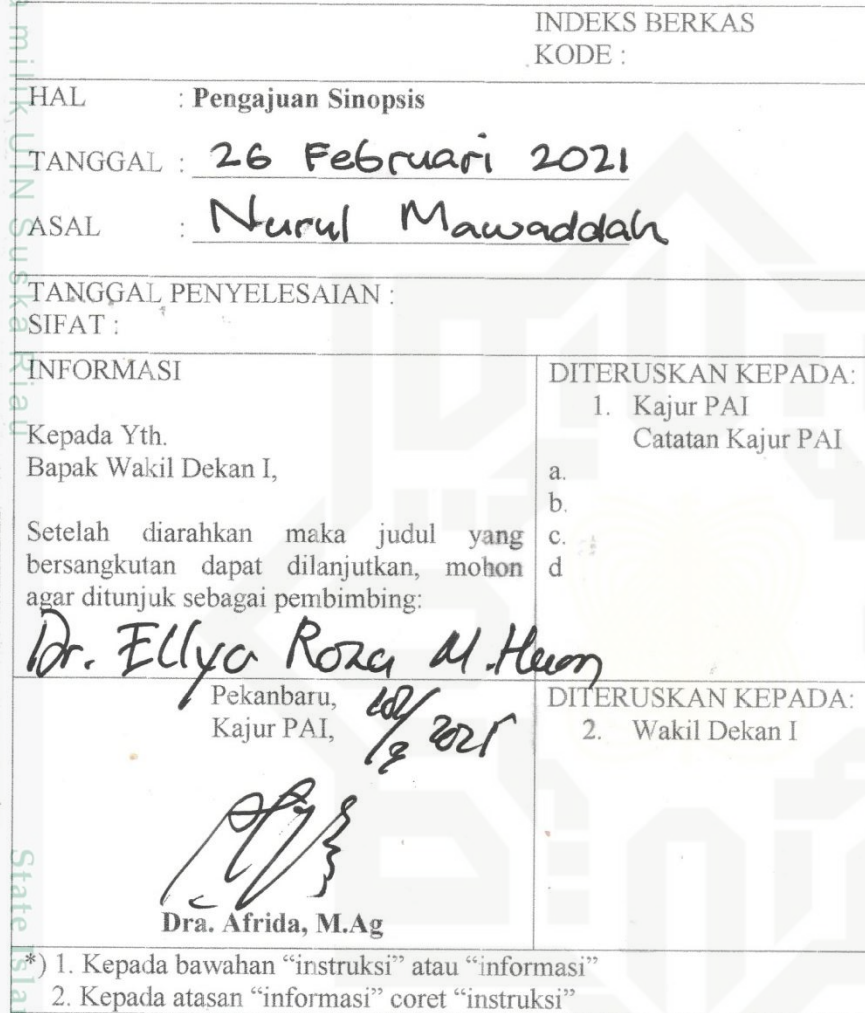 INDEKS BERKAS
KODE :
HAL : Pengajuan Sinopsis
TANGGAL : 26 Februari 2021
ASAL : Nurul Mawaddah
TANGGAL PENYELESAIAN :
SIFAT :
INFORMASI
Kepada Yth.
Bapak Wakil Dekan I,
Setelah diarahkan maka judul yang
bersangkutan dapat dilanjutkan, mohon
agar ditunjuk sebagai pembimbing:
Dr. Ellya Roza M.Hum
DITERUSKAN KEPADA:
1. Kajur PAI
Catatan Kajur PAI
a.
b.
c.
d
Pekanbaru,
Kajur PAI, 2021
Dra. Afrida, M.Ag
DITERUSKAN KEPADA:
2. Wakil Dekan I
*) 1. Kepada bawahan “instruksi” atau “informasi”
2. Kepada atasan “informasi” coret “instruksi”
milik UIN Suska Riau
State